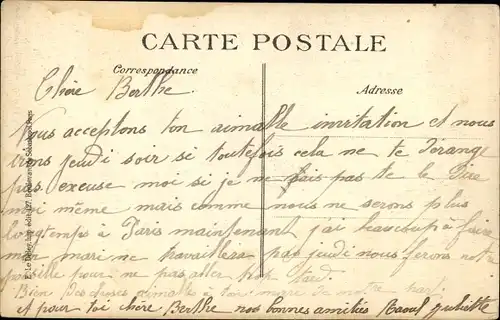 CARTE POSTALE
Correspondance
Adresse
Chère Berthe
Nous acceptons ton aimable invitation et nous
irons jeudi soir si toutefois cela ne te dérange
pas excuse moi si je ne fais pas te le dire
moi même mais comme nous ne serons plus
longtemps à Paris maintenant j'ai beaucoup à faire
mon mari ne travaillera pas jeudi nous ferons notre
possible pour ne pas aller trop tard
Bien des choses aimable à ton mari de notre part
et pour toi chère Berthe nos bonnes amitiés Raoul Juliette